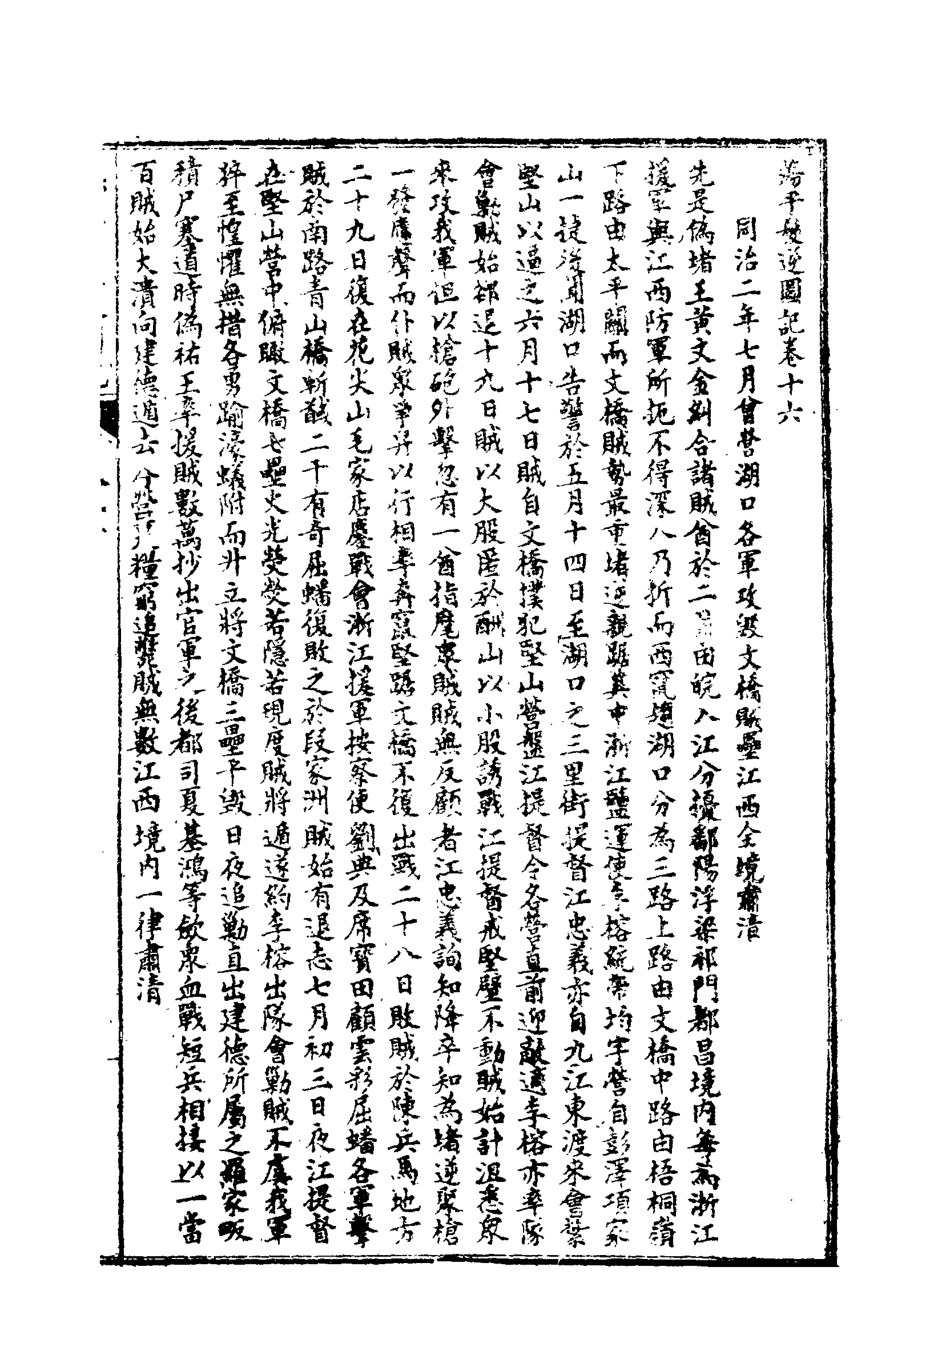 蕩平髮逆圖記卷十六
同治二年七月會營湖口各軍攻毀文橋賊壘江西全境肅清
先是偽堵王黃文金糾合諸賊酋於二由皖入江分擾鄱陽浮梁祁門都昌境內每為浙江
援軍與江西防軍所扼不得深入乃折而西竄趨湖口分為三路上路由文橋中路由梧桐嶺
下路由太平關而文橋賊勢最重堵逆親踞其中浙江鹽運使李榕統帶均字營自彭澤項家
山一捷後聞湖口告警於五月十四日至湖口之三里街提督江忠義亦自九江東渡來會紮
堅山以逼之六月十七日賊自文橋撲犯堅山營盤江提督令各營直前迎敵適李榕亦率隊
會剿賊始卻退十九日賊以大股匿於酬山以小股誘戰江提督戒堅壁不動賊始計沮悉眾
來攻我軍但以槍砲外擊忽有一酋指麾衆賊賊無反顧者江忠義詢知降卒知為堵逆聚槍
一發應聲而仆賊衆爭舁以行相率奔竄堅踞文橋不復出戰二十八日敗賊於陳兵馬地方
二十九日復在花尖山毛家店鏖戰會浙江援軍按察使劉典及席寶田顧雲彩屈蟠各軍擊
賊於南路青山橋斬馘二千有奇屈蟠復敗之於段家洲賊始有退志七月初三日夜江提督
在堅山營中俯瞰文橋七壘火光熒熒若隱若現度賊將遁遂約李榕出隊會剿賊不虞我軍
猝至惶懼無措各勇踰濠蟻附而升立將文橋三壘平毀日夜追剿直出建德所屬之羅家畈
積尸塞道時偽祐王率援賊數萬抄出官軍之後都司夏基鴻等歛衆血戰短兵相接以一當
百賊始大潰向建德遁去各營糧窮追斃賊無數江西境內一律肅清